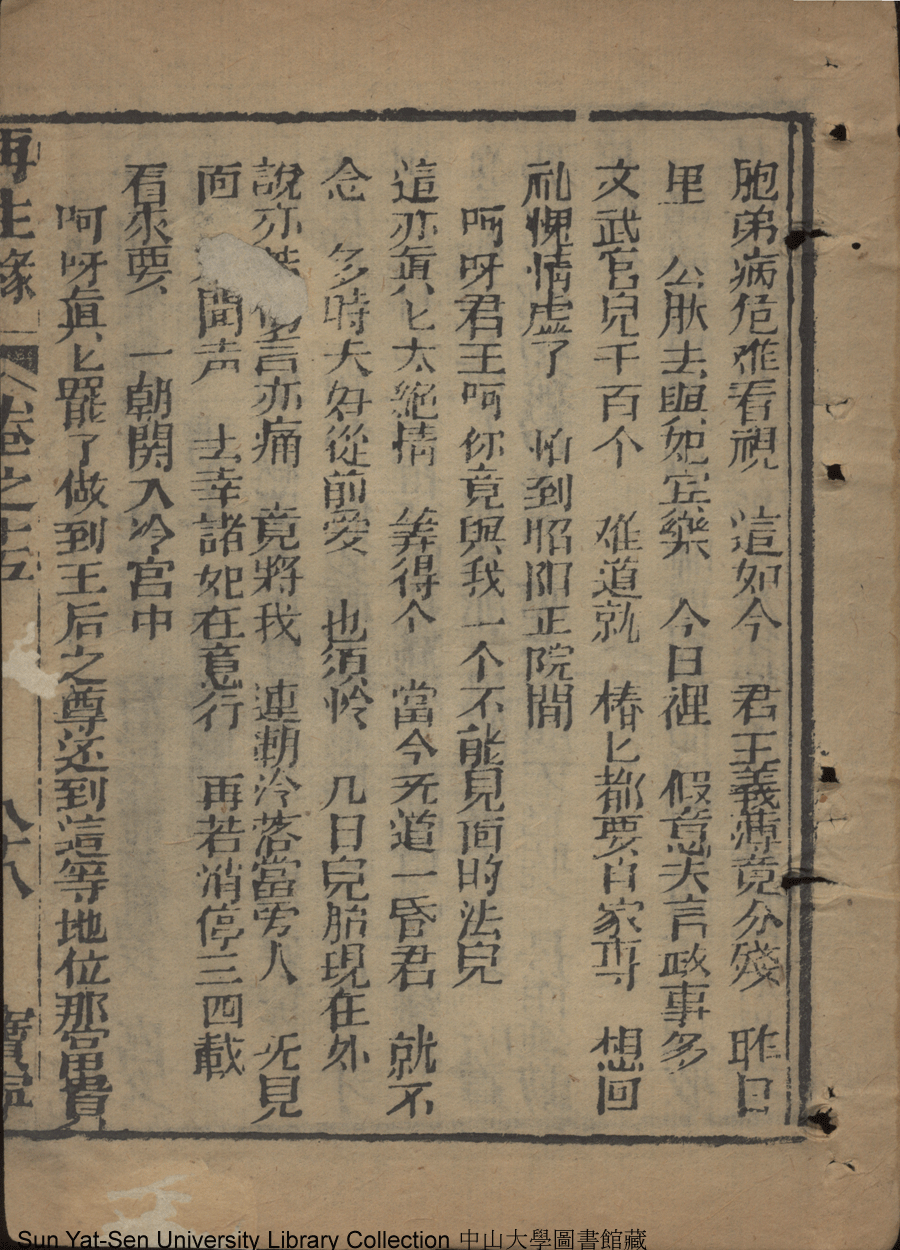 胞弟病危难看視 這如今 君王義薄竟分殘 昨日
里 公肽去與妃宜樂 今日裡 假意夫言政事多
文武官兒千百个 难道就 樁匕都要自家専 想回
礼愧情虚了 怕到昭阳正院間
呵呀君王呵你竟與我一个不能見面的法兒
這亦真匕太絕情 筭得个 當今无道一昏君 就不
念 多時夫婦從前愛 也須怜 几日兒胎現在外
說亦 言亦痛 竟將我 連朝冷落當旁人 无見
面 聞声 去幸諸妃在意行 再若消停三四載
看來要 一朝開入冷宫中
呵呀真匕罷了做到王后之尊还到這等地位那富貴
再生緣 卷之十五 八十八
Sun Yat-Sen University Library Collection 中山大學圖書館藏